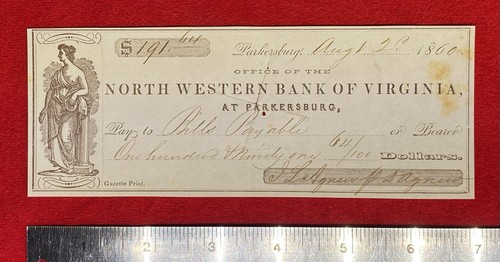 $ 191.64
Parkersburg, Augt 2d 1860
OFFICE OF THE
NORTH WESTERN BANK OF VIRGINIA,
AT PARKERSBURG,
Pay to Bills Payable or Bearer
One hundred & Ninety one 64/100 Dollars.
Gazette Print.
1 2 3 4 5 6 7